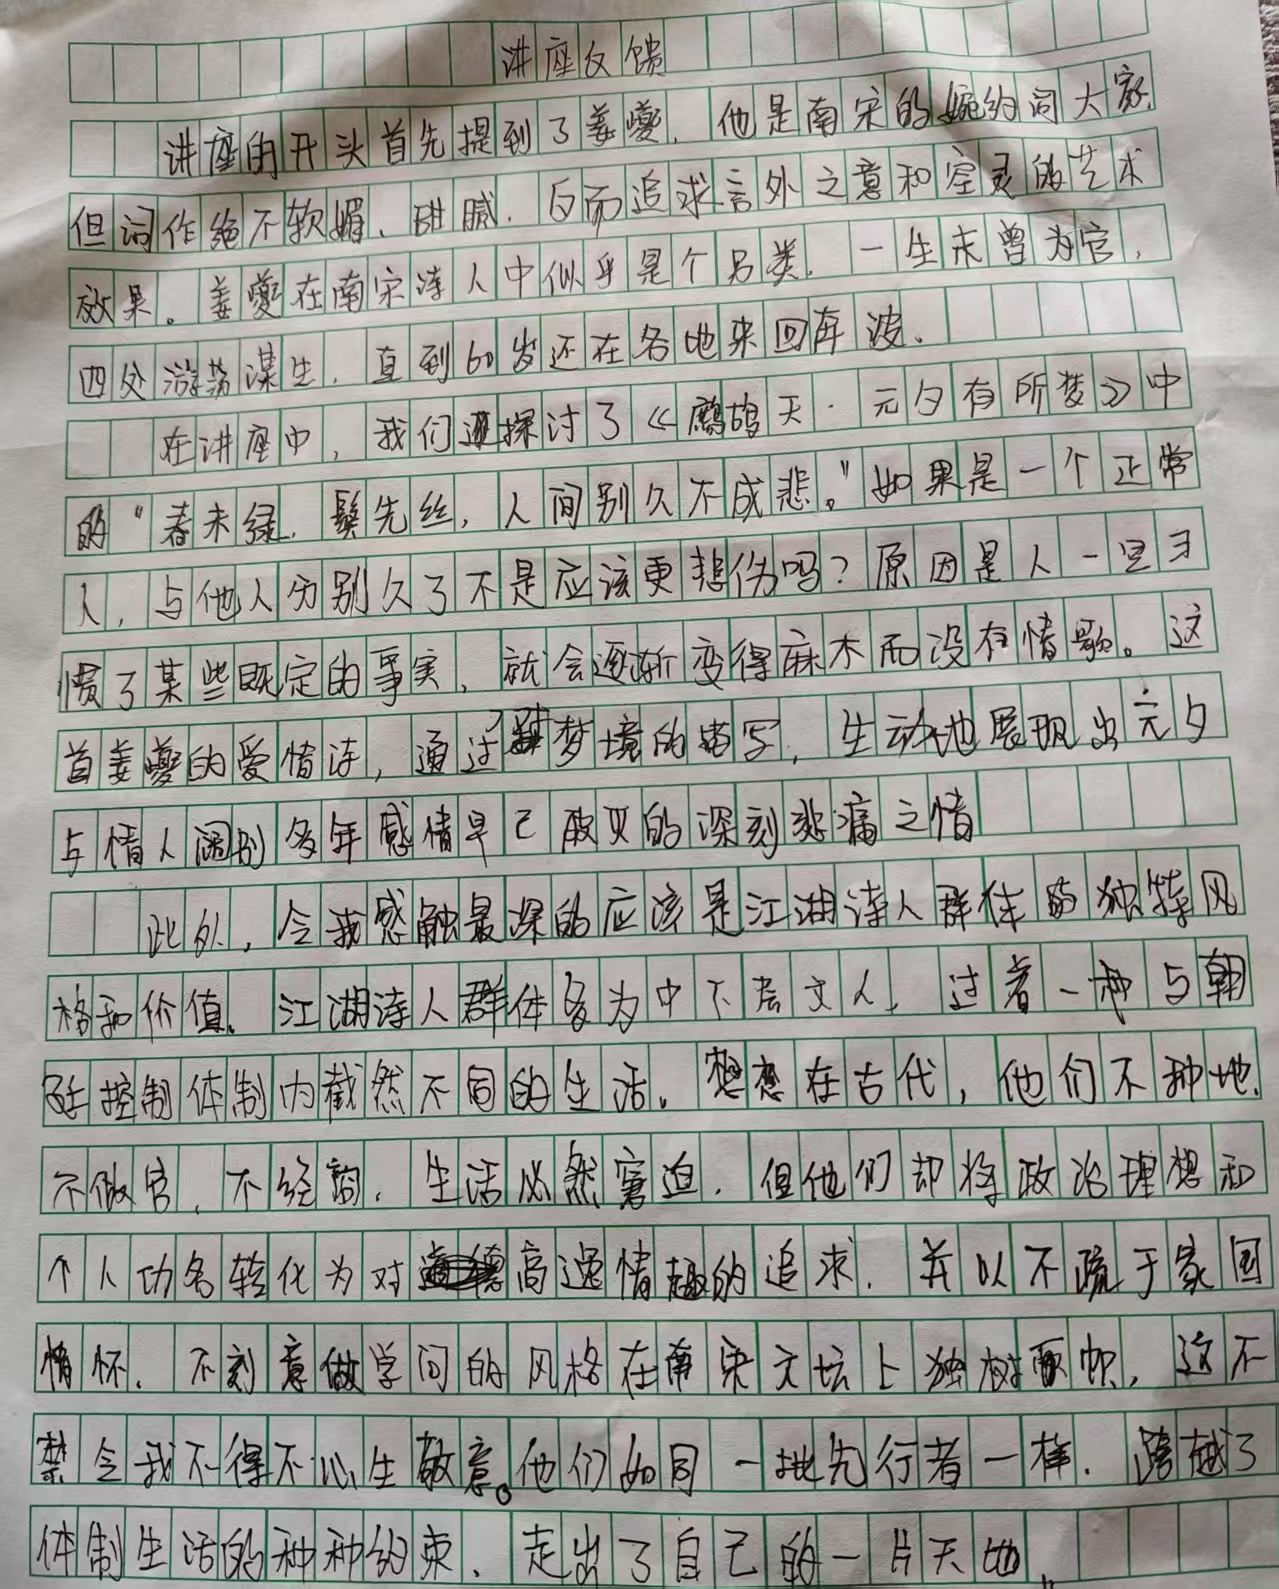 讲座反馈
讲座的开头首先提到了姜夔，他是南宋的婉约词大家，
但词作绝不软媚、甜腻，反而追求言外之意和空灵的艺术
效果。姜夔在南宋诗人中似乎是个另类，一生未曾为官，
四处游荡谋生，直到60岁还在各地来回奔波。
在讲座中，我们探讨了《鹧鸪天·元夕有所梦》中
的“春未绿，鬓先丝，人间别久不成悲。”如果是一个正常
人，与他人分别久了不是应该更悲伤吗？原因是人一旦习
惯了某些既定的事实，就会逐渐变得麻木而没有情歌。这
首姜夔的爱情诗，通过梦境的描写，生动地展现出元夕
与情人阔别多年感情早已破灭的深刻悲痛之情
此外，令我感触最深的应该是江湖诗人群体的独特风
格和价值。江湖诗人群体多为中下层文人，过着一种与朝
廷控制体制内截然不同的生活。想想在古代，他们不种地，
不做官，不经商，生活必然窘迫，但他们却将政治理想和
个人功名转化为对高逸情趣的追求，并以不疏于家国
情怀，不刻意做学问的风格在南宋文坛上独树一帜，这不
禁令我不得不心生敬意。他们如同一批先行者一样，跨越了
体制生活的种种约束，走出了自己的一片天地。